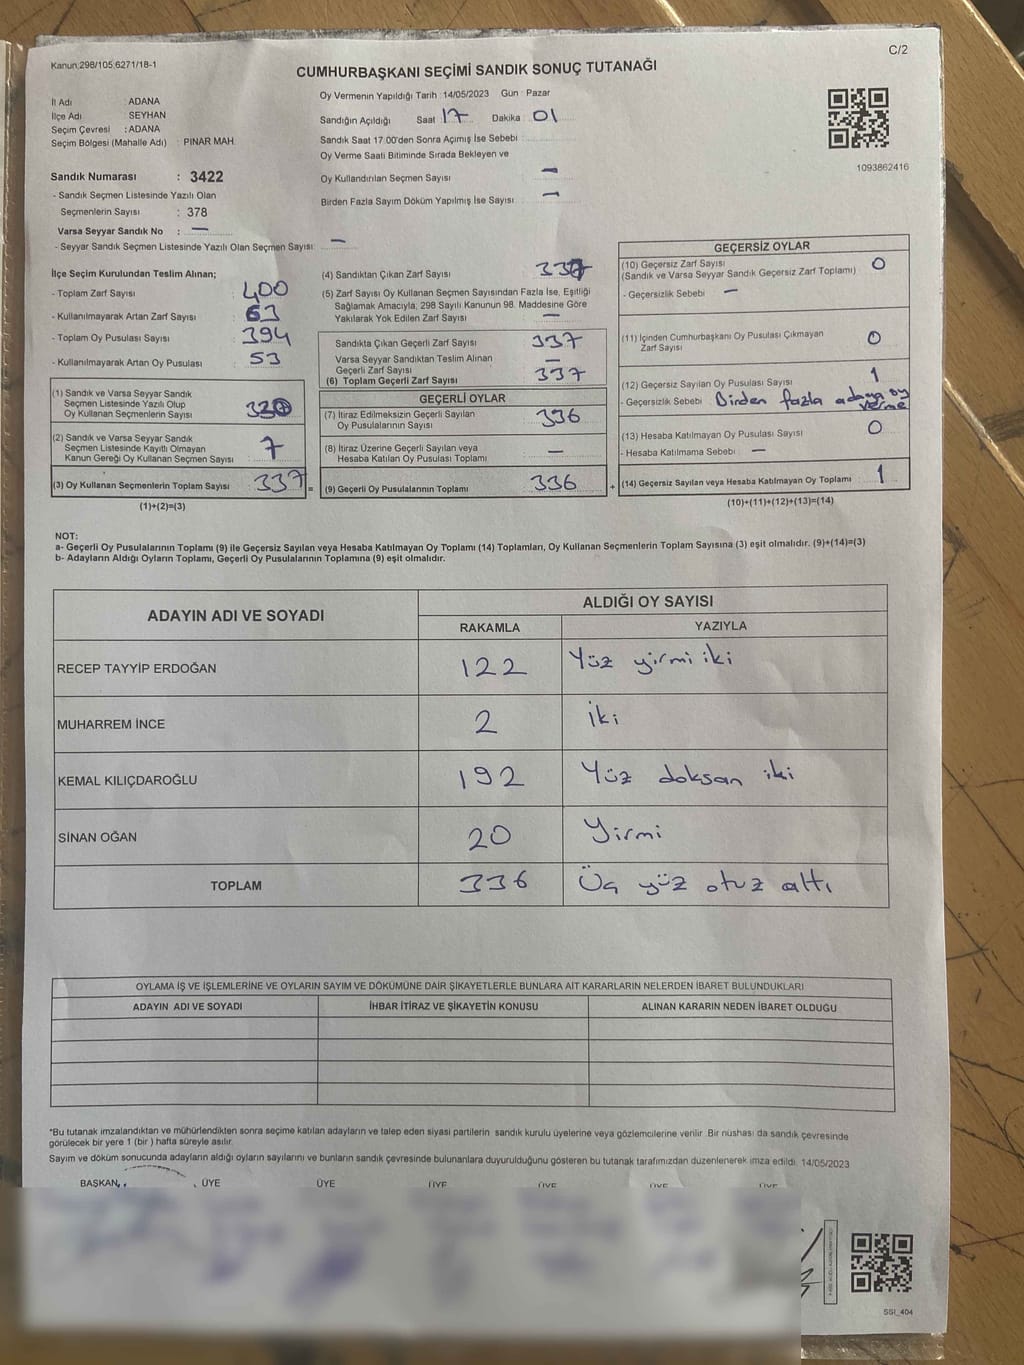 C/2
Kanun;298/105,6271/18-1
CUMHURBAŞKANI SEÇİMİ SANDIK SONUÇ TUTANAĞI
İl Adı : ADANA
İlçe Adı : SEYHAN
Seçim Çevresi : ADANA
Seçim Bölgesi (Mahalle Adı) : PINAR MAH.
Oy Vermenin Yapıldığı Tarih : 14/05/2023 Gün : Pazar
Sandığın Açıldığı Saat 17 Dakika 01
Sandık Saat 17.00'den Sonra Açımış İse Sebebi :
Oy Verme Saati Bitiminde Sırada Bekleyen ve
Oy Kullandırılan Seçmen Sayısı : —
Birden Fazla Sayım Döküm Yapılmış İse Sayısı : —
1093862416
Sandık Numarası : 3422
- Sandık Seçmen Listesinde Yazılı Olan
Seçmenlerin Sayısı : 378
Varsa Seyyar Sandık No : —
- Seyyar Sandık Seçmen Listesinde Yazılı Olan Seçmen Sayısı: —
İlçe Seçim Kurulundan Teslim Alınan;
- Toplam Zarf Sayısı : 400
- Kullanılmayarak Artan Zarf Sayısı : 63
- Toplam Oy Pusulası Sayısı : 394
- Kullanılmayarak Artan Oy Pusulası : 53
(1) Sandık ve Varsa Seyyar Sandık
Seçmen Listesinde Yazılı Olup
Oy Kullanan Seçmenlerin Sayısı :
(2) Sandık ve Varsa Seyyar Sandık
Seçmen Listesinde Kayıtlı Olmayan
Kanun Gereği Oy Kullanan Seçmen Sayısı : 7
(3) Oy Kullanan Seçmenlerin Toplam Sayısı : 337 =
(1)+(2)=(3)
(4) Sandıktan Çıkan Zarf Sayısı : 337
(5) Zarf Sayısı Oy Kullanan Seçmen Sayısından Fazla İse, Eşitliği
Sağlamak Amacıyla; 298 Sayılı Kanunun 98. Maddesine Göre
Yakılarak Yok Edilen Zarf Sayısı : —
Sandıkta Çıkan Geçerli Zarf Sayısı : 337
Varsa Seyyar Sandıktan Teslim Alınan
Geçerli Zarf Sayısı : —
(6) Toplam Geçerli Zarf Sayısı : 337
GEÇERLİ OYLAR
(7) İtiraz Edilmeksizin Geçerli Sayılan
Oy Pusulalarının Sayısı : 336
(8) İtiraz Üzerine Geçerli Sayılan veya
Hesaba Katılan Oy Pusulası Toplamı : —
(9) Geçerli Oy Pusulalarının Toplamı : 336 +
GEÇERSİZ OYLAR
(10) Geçersiz Zarf Sayısı : 0
(Sandık ve Varsa Seyyar Sandık Geçersiz Zarf Toplamı)
- Geçersizlik Sebebi : —
(11) İçinden Cumhurbaşkanı Oy Pusulası Çıkmayan
Zarf Sayısı : 0
(12) Geçersiz Sayılan Oy Pusulası Sayısı : 1
- Geçersizlik Sebebi : Birden fazla adaya oy
verme
(13) Hesaba Katılmayan Oy Pusulası Sayısı : 0
- Hesaba Katılmama Sebebi : —
(14) Geçersiz Sayılan veya Hesaba Katılmayan Oy Toplamı : 1
(10)+(11)+(12)+(13)=(14)
NOT:
a- Geçerli Oy Pusulalarının Toplamı (9) ile Geçersiz Sayılan veya Hesaba Katılmayan Oy Toplamı (14) Toplamları, Oy Kullanan Seçmenlerin Toplam Sayısına (3) eşit olmalıdır. (9)+(14)=(3)
b- Adayların Aldığı Oyların Toplamı, Geçerli Oy Pusulalarının Toplamına (9) eşit olmalıdır.
ADAYIN ADI VE SOYADI
ALDIĞI OY SAYISI
RAKAMLA YAZIYLA
RECEP TAYYİP ERDOĞAN 122 Yüz yirmi iki
MUHARREM İNCE 2 İki
KEMAL KILIÇDAROĞLU 192 Yüz doksan iki
SİNAN OĞAN 20 Yirmi
TOPLAM 336 Üç yüz otuz altı
OYLAMA İŞ VE İŞLEMLERİNE VE OYLARIN SAYIM VE DÖKÜMÜNE DAİR ŞİKAYETLERLE BUNLARA AİT KARARLARIN NELERDEN İBARET BULUNDUKLARI
ADAYIN ADI VE SOYADI İHBAR İTİRAZ VE ŞİKAYETİN KONUSU ALINAN KARARIN NEDEN İBARET OLDUĞU
*Bu tutanak imzalandıktan ve mühürlendikten sonra seçime katılan adayların ve talep eden siyasi partilerin sandık kurulu üyelerine veya gözlemcilerine verilir. Bir nüshası da sandık çevresinde
görülecek bir yere 1 (bir ) hafta süreyle asılır.
Sayım ve döküm sonucunda adayların aldığı oyların sayılarını ve bunların sandık çevresinde bulunanlara duyurulduğunu gösteren bu tutanak tarafımızdan düzenlenerek imza edildi. 14/05/2023
BAŞKAN ÜYE ÜYE ÜYE ÜYE ÜYE ÜYE
SSI_404